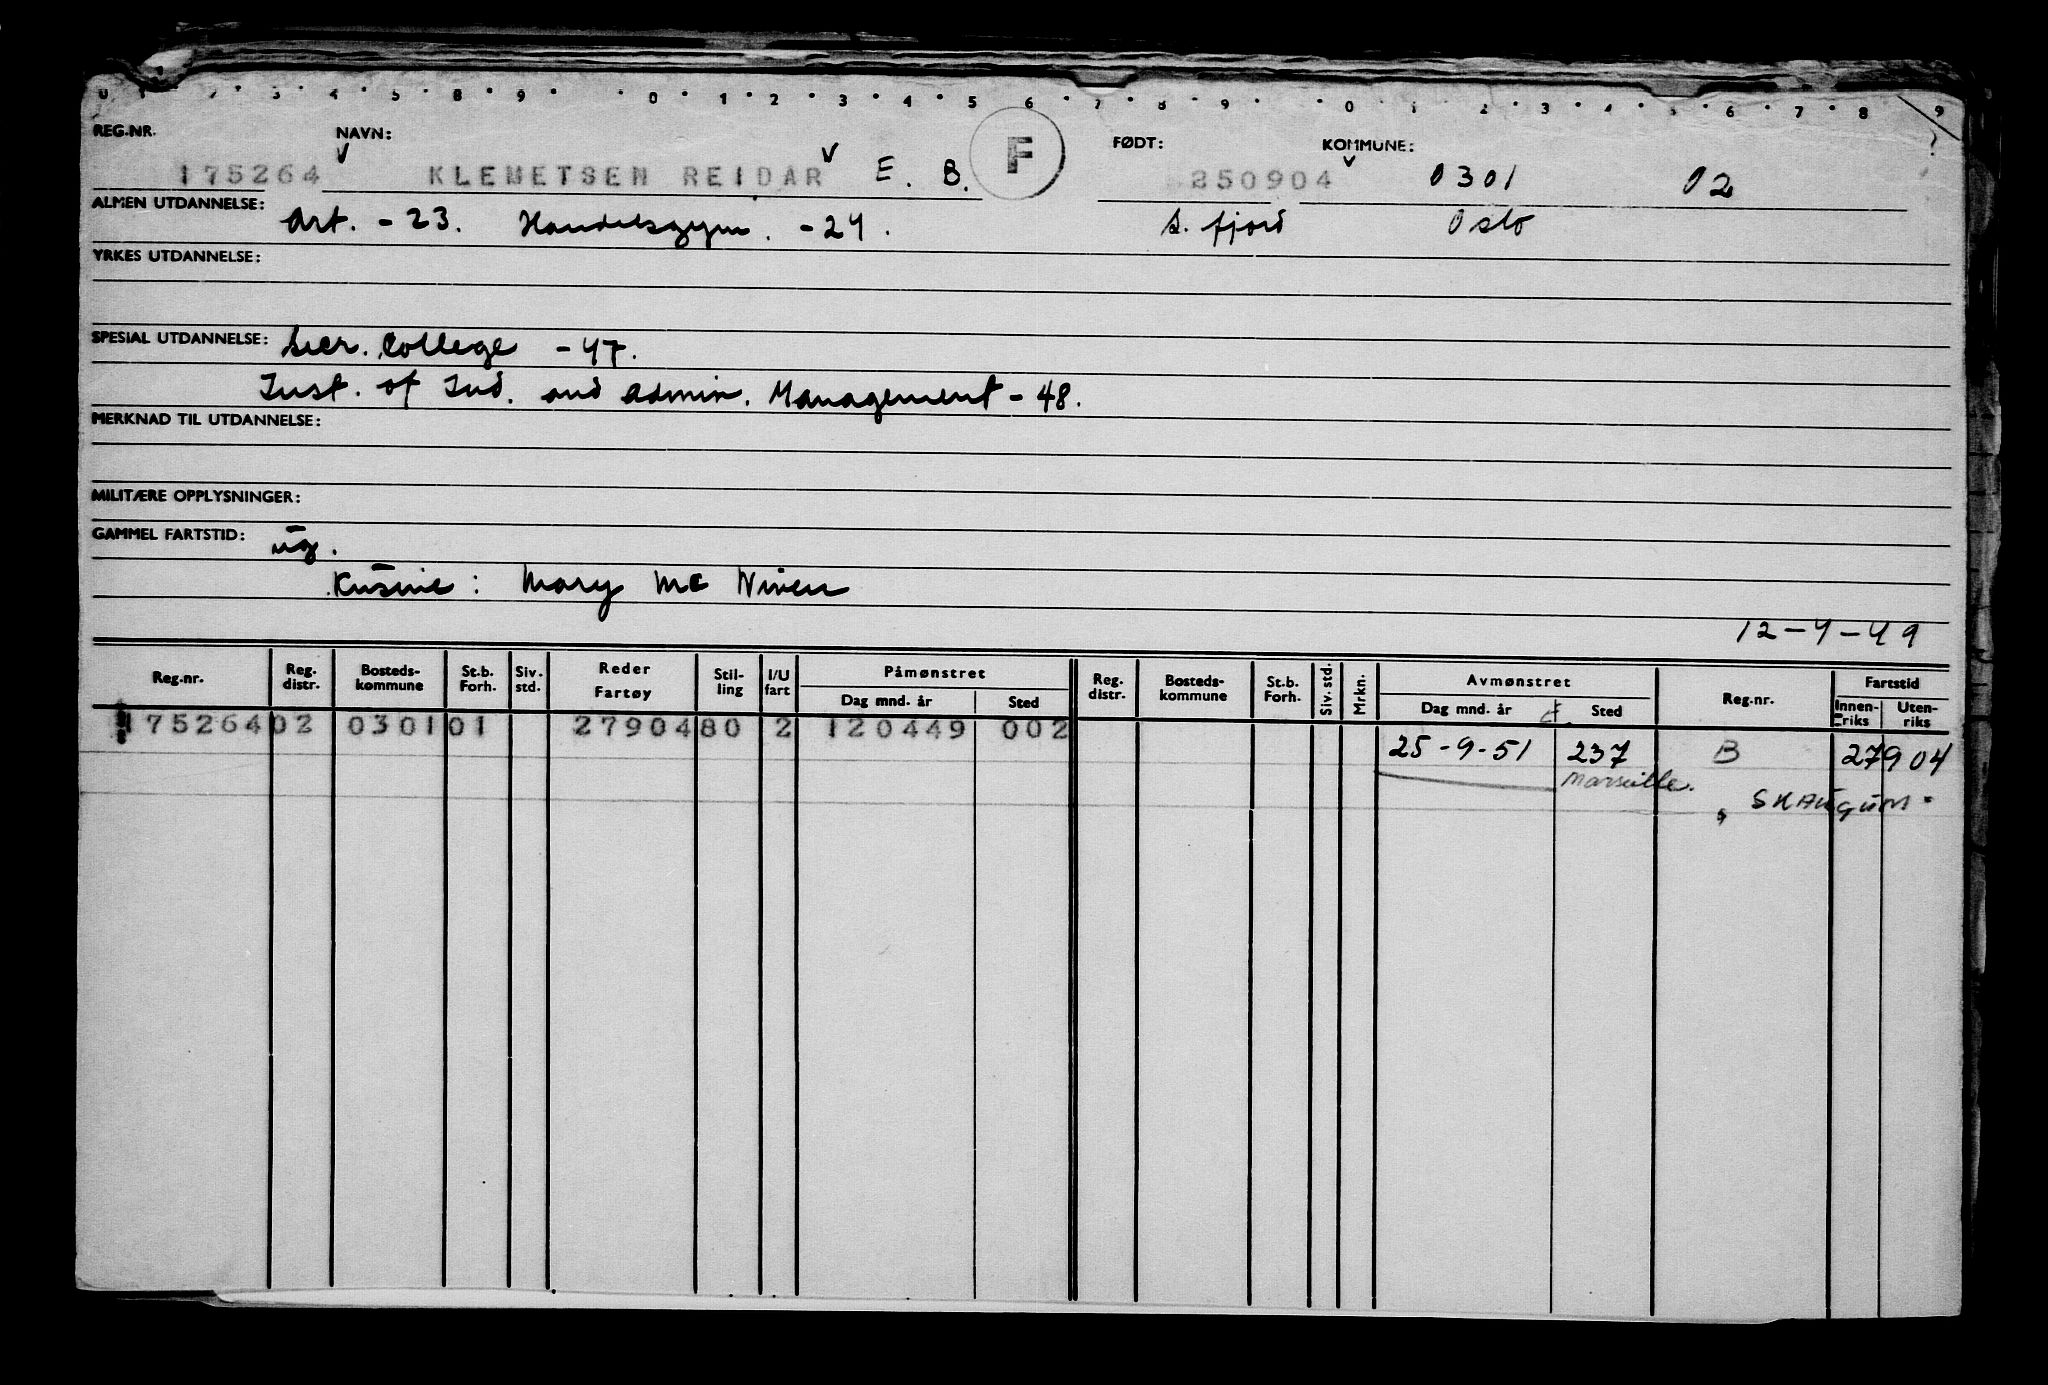 0 1 2 3 4 5 8 9 0 1 2 3 4 5 6 7 8 9 0 1 2 3 4 5 6 7 8 9
REG.NR. NAVN: F FØDT: KOMMUNE:
175264 KLEMETSEN REIDAR E. B. 250904 0301 02
ALMEN UTDANNELSE: Art. - 23. Handelsgym. - 24. S. fjord Oslo
YRKES UTDANNELSE:
SPESIAL UTDANNELSE: Secr. College - 47.
Inst. of Ind. and Admin. Management - 48.
MERKNAD TIL UTDANNELSE:
MILITÆRE OPPLYSNINGER:
GAMMEL FARTSTID: ug.
Kusine: Mary Mc Niven
12-4-49
Reg.nr. Reg. distr. Bosteds-kommune St.b. Forh. Siv. std. Reder Fartøy Stil-ling I/U fart Påmønstret Dag mnd. år Sted Reg. distr. Bosteds-kommune St.b. Forh. Siv. std. Mrkn. Avmønstret Dag mnd. år Sted Reg.nr. Fartstid Innen-riks Uten-riks
175264 02 0301 01 27904 80 2 120449 002
25-9-51 237 B 27904
Marseille. SKAUGUM